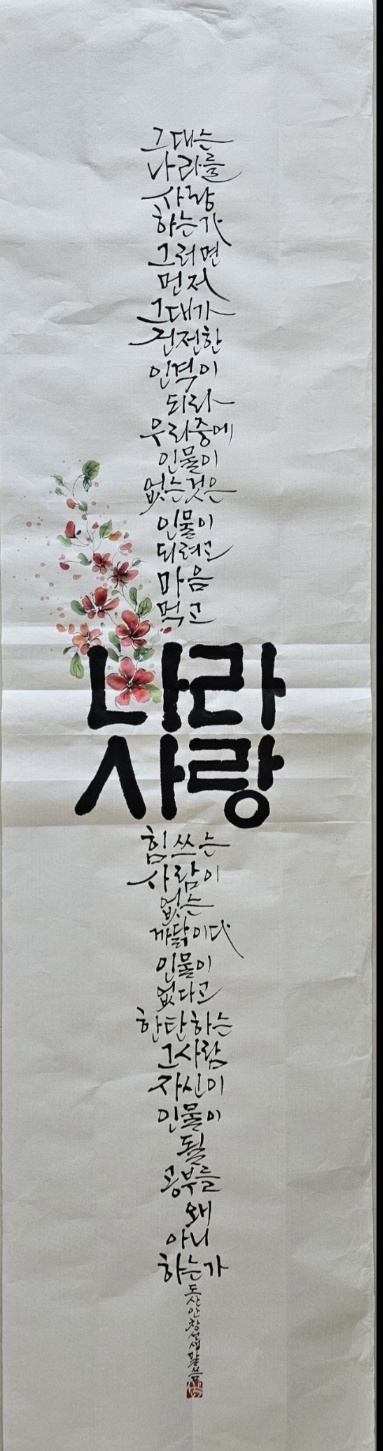 그대는
나라를
사랑
하는가
그러면
먼저
그대가
건전한
인격이
되라
우리중에
인물이
없는것은
인물이
되려고
마음
먹고
나라
사랑
힘쓰는
사람이
없는
까닭이다
인물이
없다고
한탄하는
그사람
자신이
인물이
될
공부를
왜
아니
하는가
도산안창호선생말씀